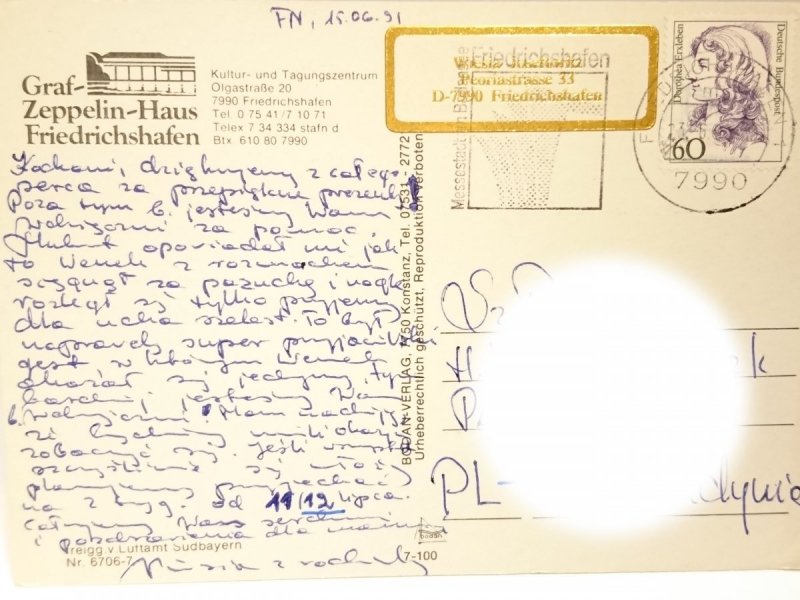 FN, 15.06.91
Graf-
Zeppelin-Haus
Friedrichshafen
Kultur- und Tagungszentrum
Olgastraße 20
7990 Friedrichshafen
Tel 0 75 41/7 10 71
Telex 7 34 334 stafn d
Btx 610 80 7990
Peoriastrasse 33
D-7990 Friedrichshafen
Friedrichshafen
Messestadt am Bodensee
Dorothea Erxleben
Deutsche Bundespost
60
7990
Kochani, dziękujemy z całego
serca za przepiękne prezenty
Poza tym b. jesteśmy Wam
wdzięczni za pomoc.
opowiadał mi jak
to Wenek z rozmachem
sięgnął za pazuchę i nagle
rozległ się tylko przyjemny
dla ucha szelest. To był
naprawdę super przyjacielski
gest w którym Wenek
okazał się jedyny, tym
bardziej jesteśmy Wam
b. wdzięczni. Mam nadzieję
że będziemy mieli okazję
zobaczyć się. Jeśli wszystko
szczęśliwie się ułoży
planujemy przyjechać
na 2 tyg. od 11/12 lipca.
Całujemy Was serdecznie
i pozdrowienia dla mamy
z rodziną
PL-
BODAN-VERLAG, 7750 Konstanz, Tel. 07531 - 2772
Urheberrechtlich geschützt, Reproduktion verboten
bodan
Freigg. v. Luftamt Südbayern
Nr. 6706-7
7-100